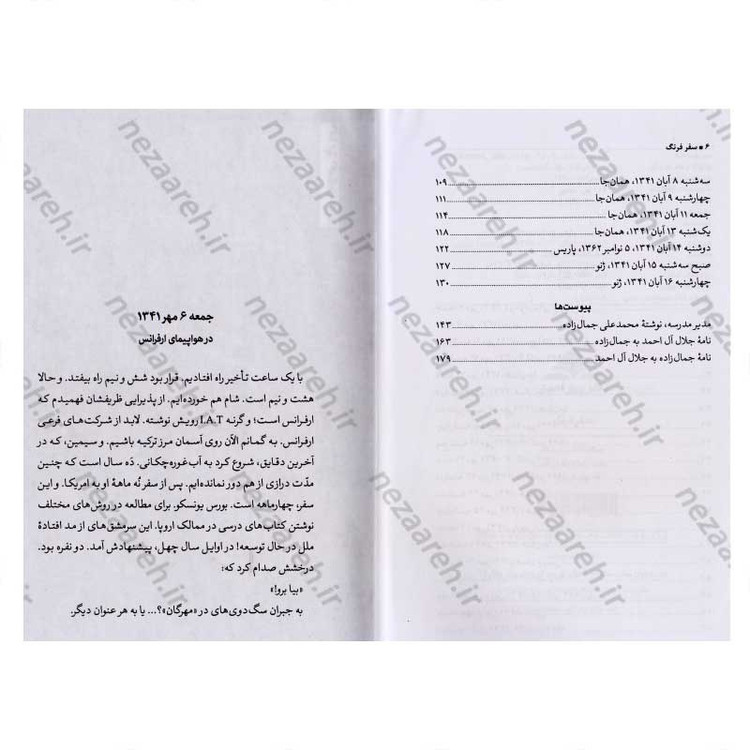 ۶ ▪ سفر فرنگ
سه‌شنبه ۸ آبان ۱۳۴۱، همان‌جا ........ ۱۰۹
چهارشنبه ۹ آبان ۱۳۴۱، همان‌جا ........ ۱۱۱
جمعه ۱۱ آبان ۱۳۴۱، همان‌جا ........ ۱۱۴
یک‌شنبه ۱۳ آبان ۱۳۴۱، همان‌جا ........ ۱۱۸
دوشنبه ۱۴ آبان ۱۳۴۱، ۵ نوامبر ۱۳۶۲، پاریس ........ ۱۲۲
صبح سه‌شنبه ۱۵ آبان ۱۳۴۱، ژنو ........ ۱۲۷
چهارشنبه ۱۶ آبان ۱۳۴۱، ژنو ........ ۱۳۰
پیوست‌ها
مدیر مدرسه، نوشتهٔ محمدعلی جمال‌زاده ........ ۱۴۳
نامهٔ جلال آل احمد به جمال‌زاده ........ ۱۶۳
نامهٔ جمال‌زاده به جلال آل احمد ........ ۱۷۹
جمعه ۶ مهر ۱۳۴۱
در هواپیمای ارفرانس
با یک ساعت تأخیر راه افتادیم. قرار بود شش و نیم راه بیفتد. و حالا
هشت و نیم است. شام هم خورده‌ایم. از پذیرایی ظریفشان فهمیدم که
ارفرانس است؛ و گرنه T.A.I رویش نوشته. لابد از شرکت‌های فرعی
ارفرانس. به گمانم الآن روی آسمان مرز ترکیه باشیم. و سیمین، که در
آخرین دقایق، شروع کرد به آب‌غوره‌چکانی. دَه سال است که چنین
مدّت درازی از هم دور نمانده‌ایم. پس از سفر نُه ماههٔ او به امریکا. و این
سفر، چهارماهه است. بورس یونسکو. برای مطالعه در روش‌های مختلف
نوشتن کتاب‌های درسی در ممالک اروپا. این سرمشق‌های از مد افتادهٔ
ملل در حال توسعه! در اوایل سال چهل، پیشنهادش آمد. دو نفره بود.
درخشش صدام کرد که:
«بیا برو!»
به جبران سگ‌دوی‌های در «مهرگان»؟... یا به هر عنوان دیگر.
nezaareh.ir